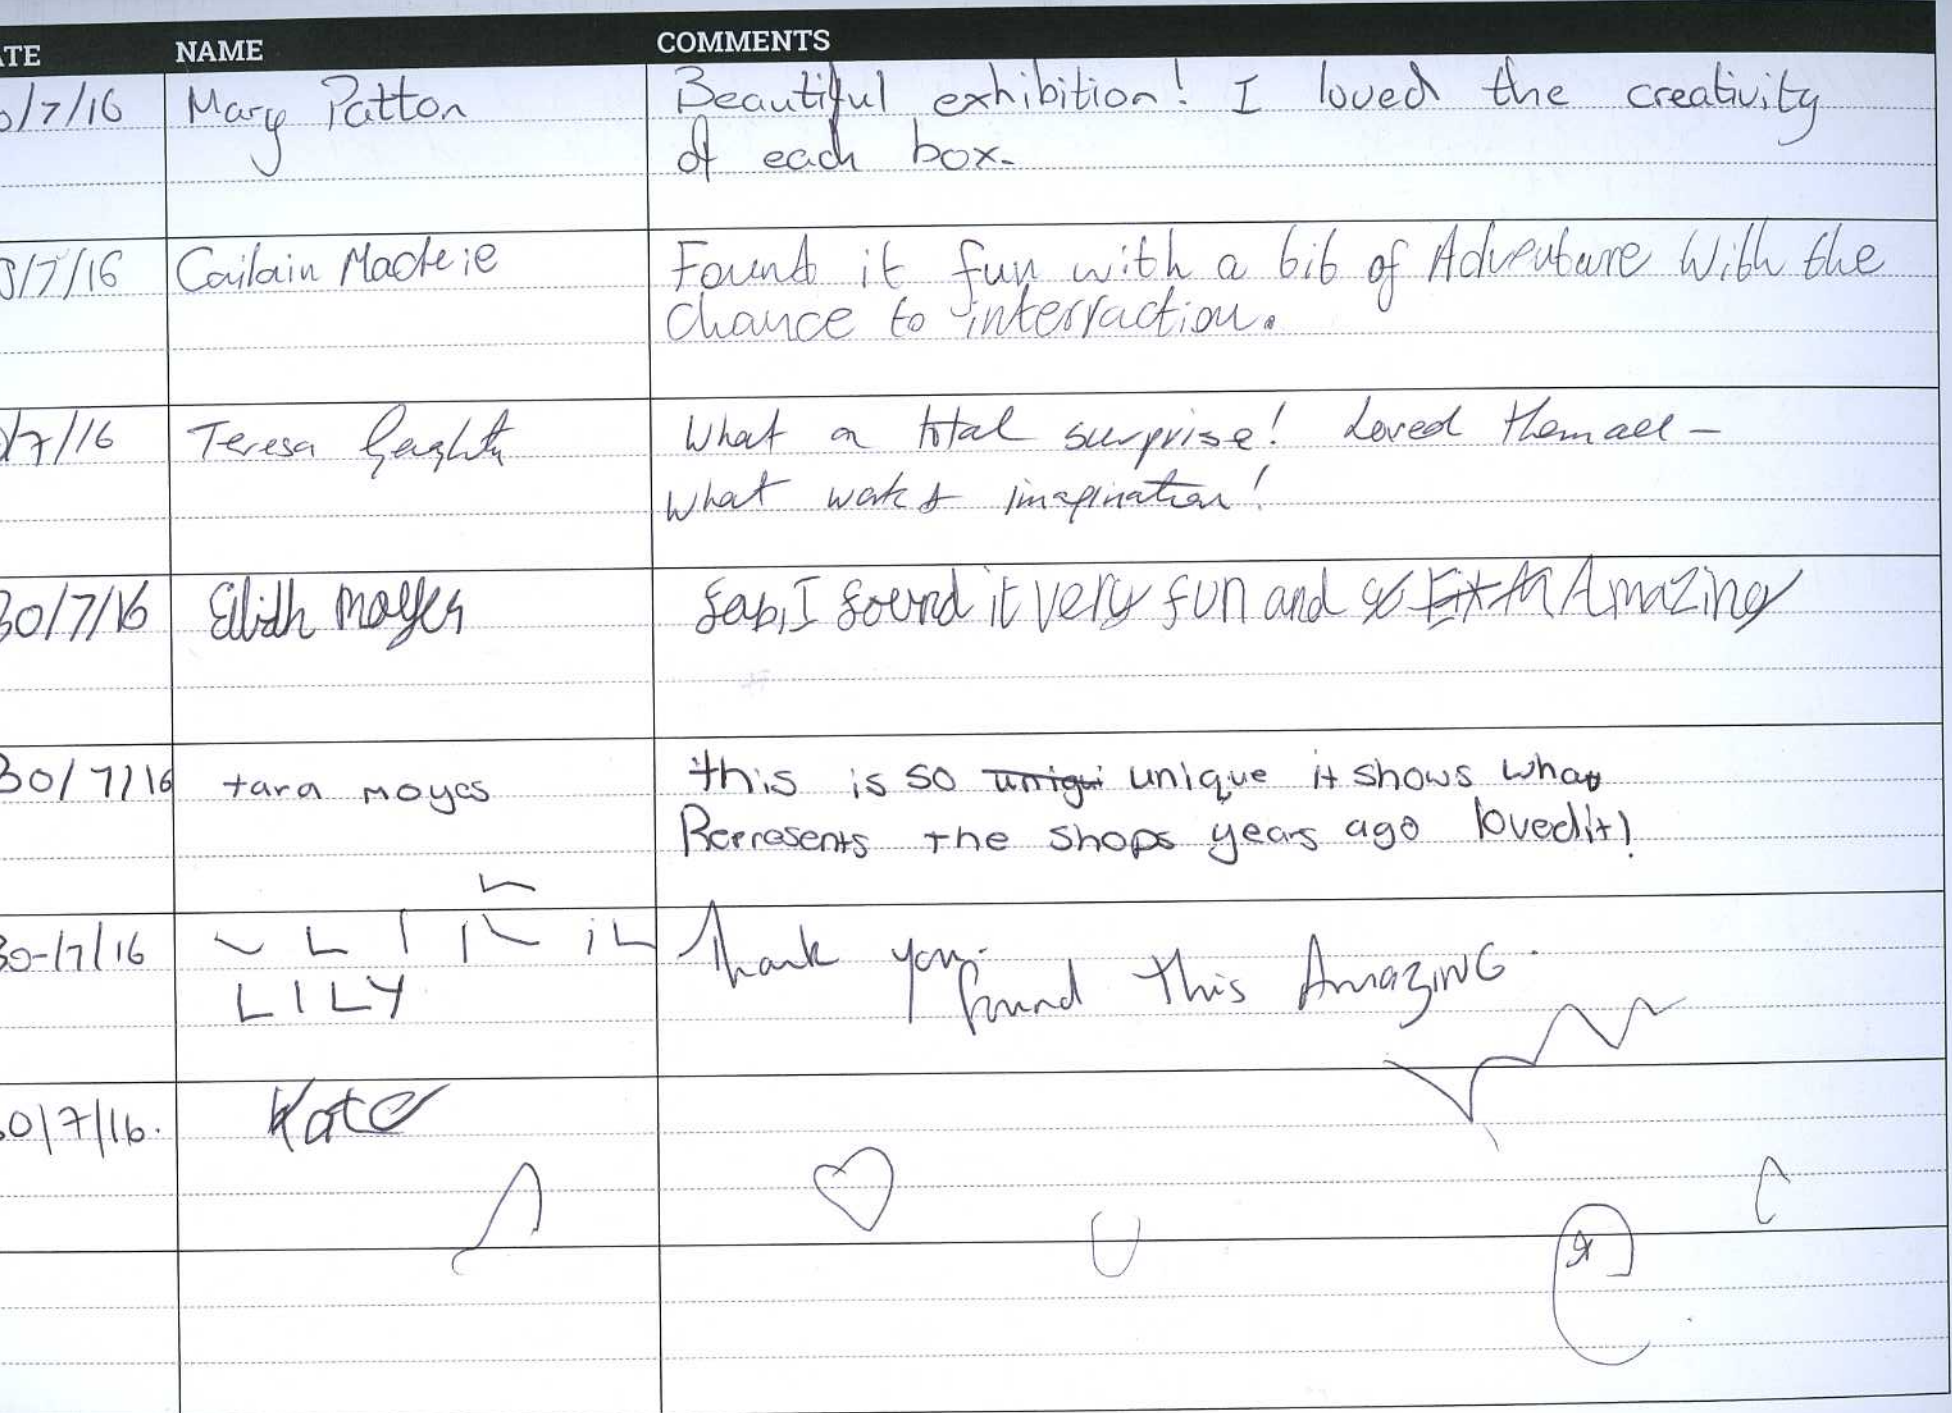 ATE NAME COMMENTS
0/7/16 Mary Patton Beautiful exhibition! I loved the creativity
of each box.
/7/16 Found it fun with a bit of Adventure With the
chance to interraction.
/7/16 Teresa What a total surprise! Loved them all –
What works imagination!
30/7/16 Eilidh Moyes fab, I found it very fun and so Amazing
30/7/16 tara moyes this is so uniqui unique it shows what
Rerresents the shops years ago loved it!
30-/7/16 Thank you.
LILY found this AmazinG.
30/7/16. Kate